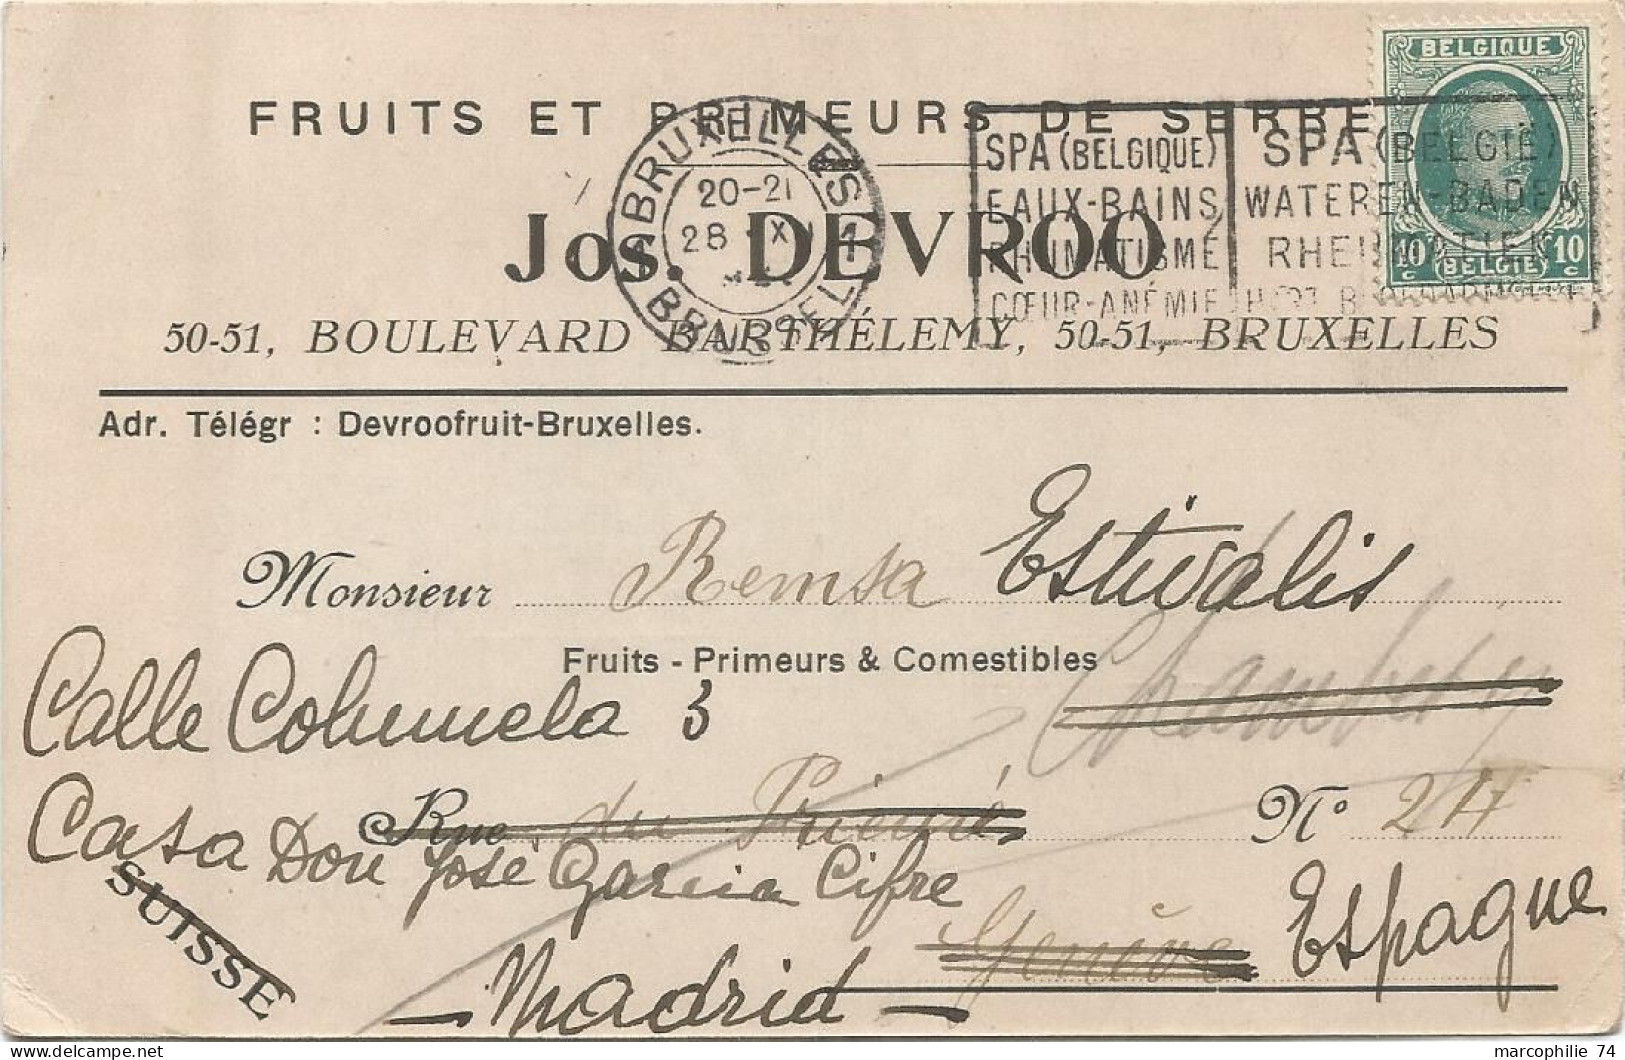 BELGIQUE
FRUITS ET PRIMEURS DE SERRE
BRUXELLES 1
20-21
28 XI
BRUSSEL
SPA (BELGIQUE)
EAUX-BAINS
RHUMATISME
CŒUR-ANÉMIE
SPA (BELGIË)
WATEREN-BADEN
RHEUMATIEK
10 c BELGIË 10 c
Jos. DEVROO
50-51, BOULEVARD BARTHÉLEMY, 50-51, BRUXELLES
Adr. Télégr : Devroofruit-Bruxelles.
Monsieur Remsa Estivalis
Fruits - Primeurs & Comestibles
Chambéry
Calle Columela 3
Rue du Prieuré N°
Casa Don José Garcia Cifre
SUISSE
Genève Espagne
- Madrid -
marcophilie 74